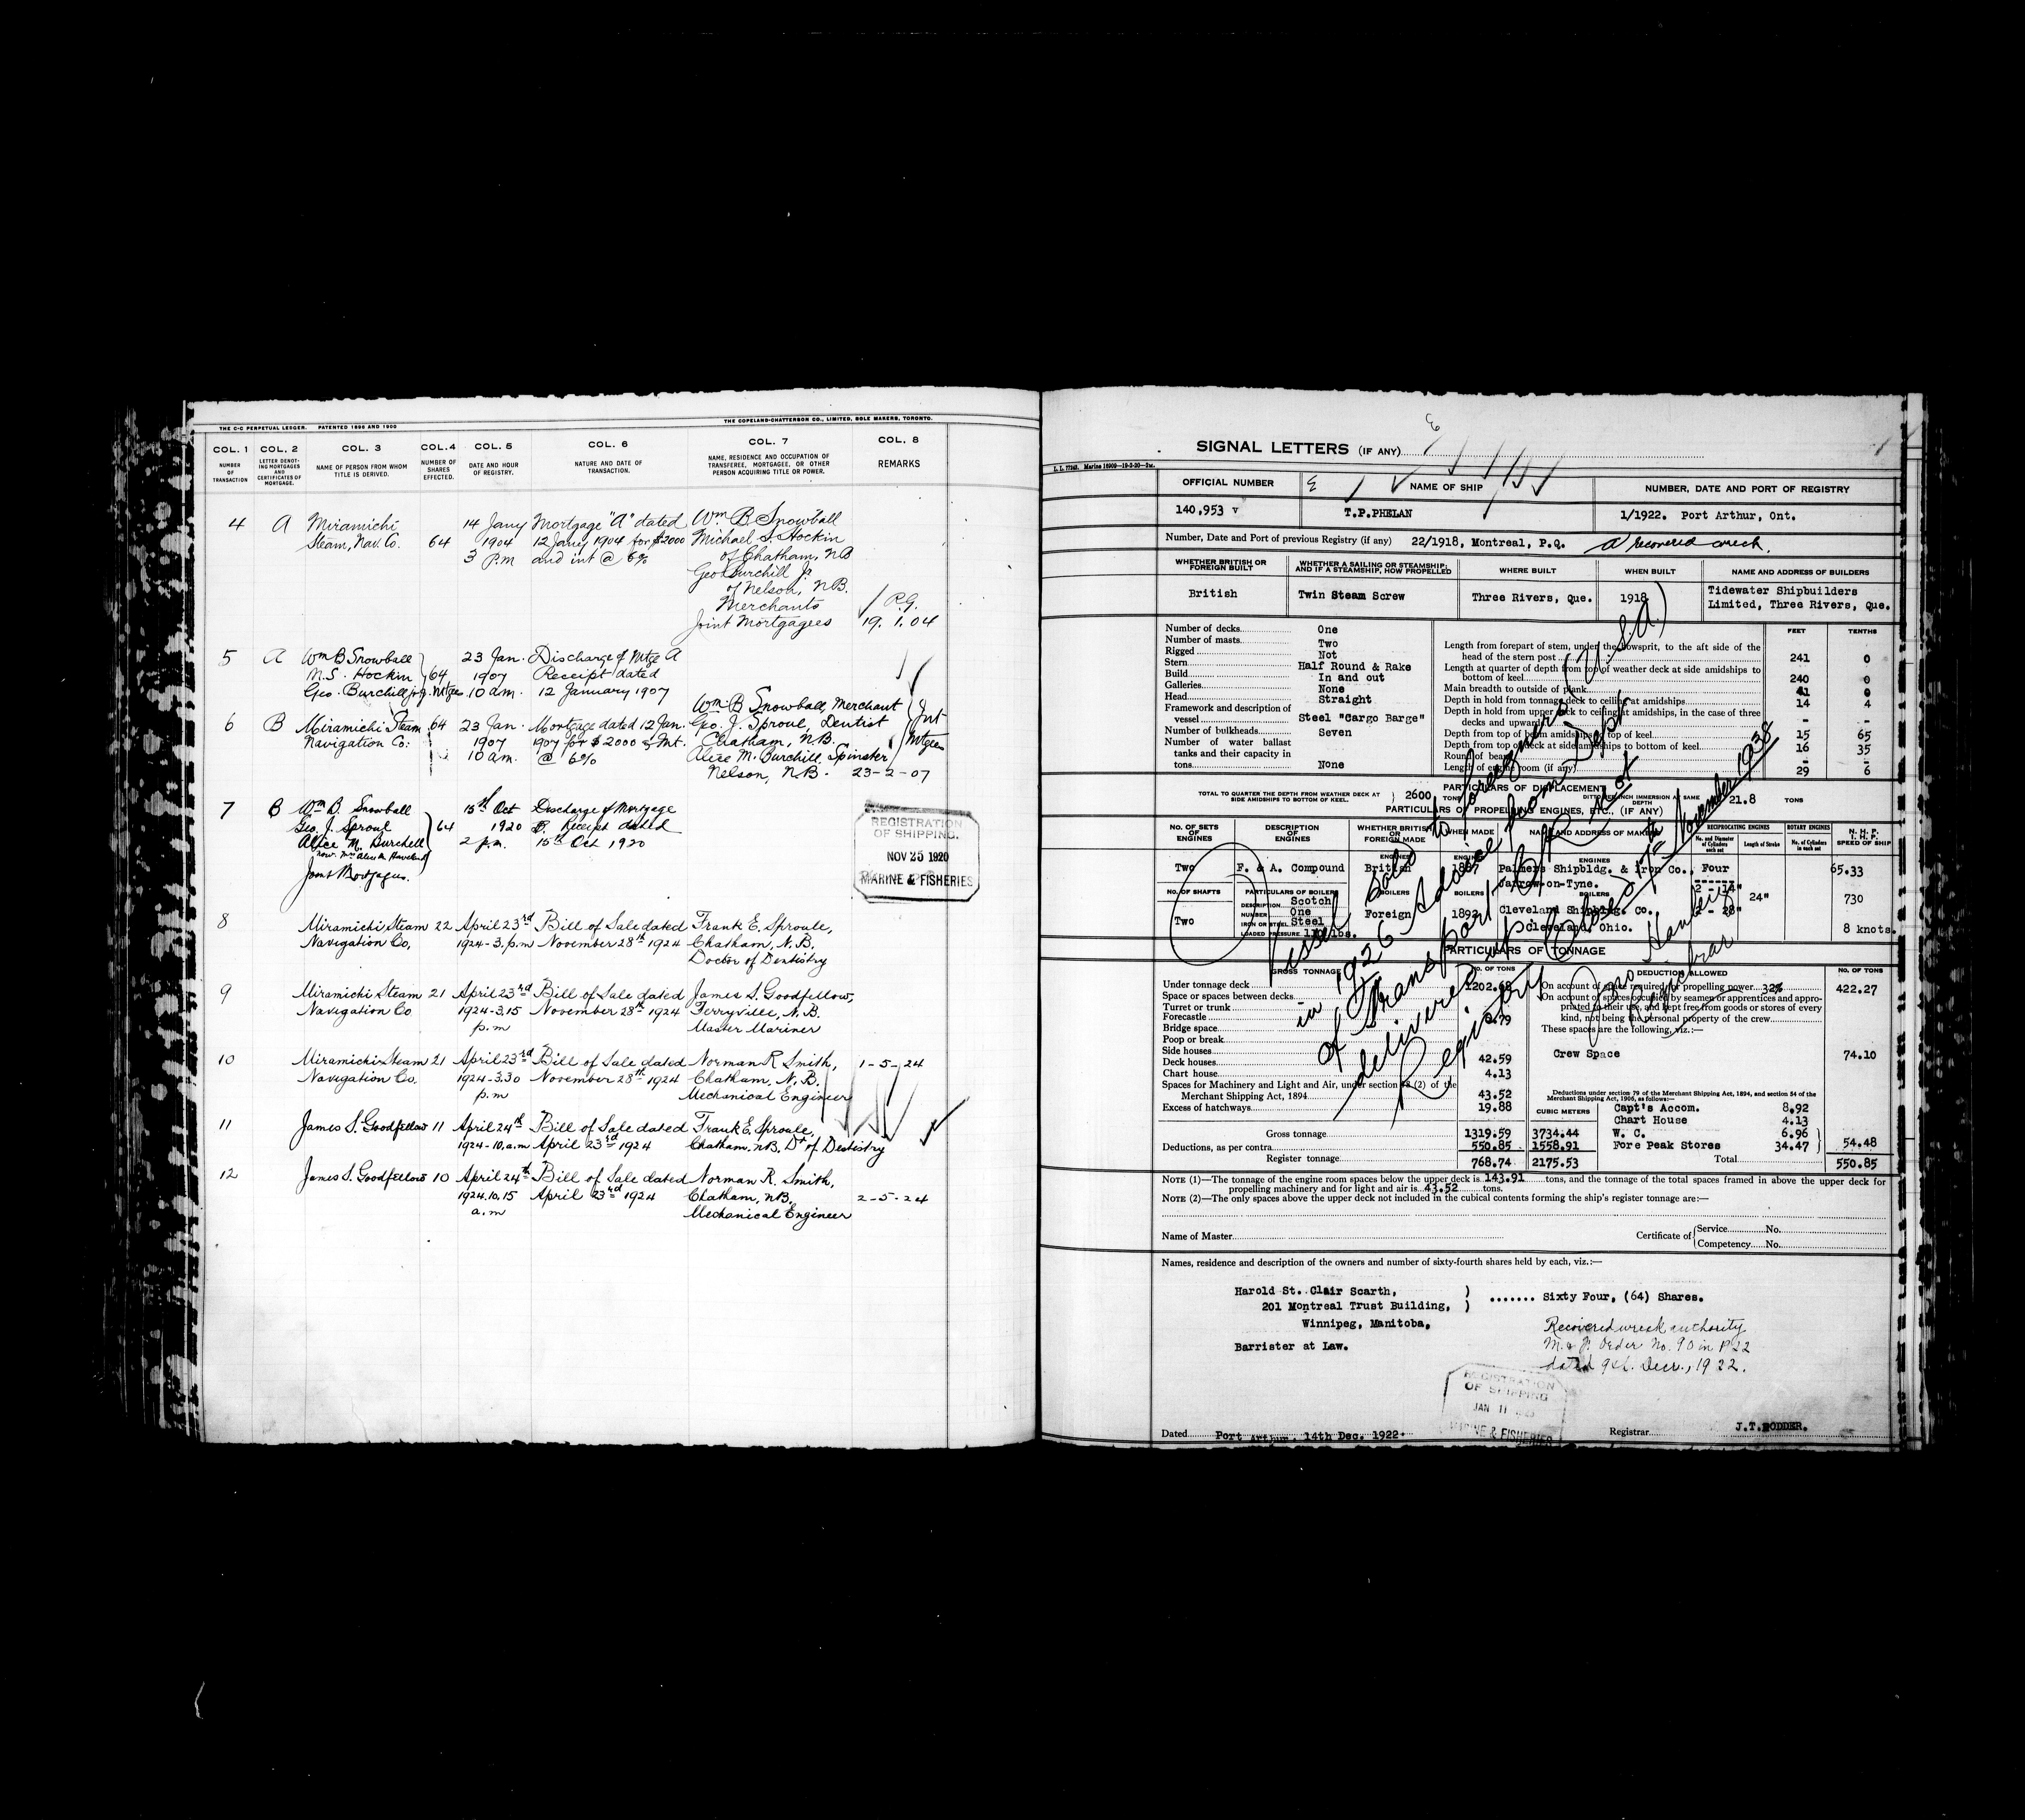 THE C-C PERPETUAL LEDGER. PATENTED 1898 AND 1900
THE COPELAND-CHATTERSON CO., LIMITED, SOLE MAKERS, TORONTO.
COL. 1 COL. 2 COL. 3 COL. 4 COL. 5 COL. 6 COL. 7 COL. 8
NUMBER OF TRANSACTION
LETTER DENOTING MORTGAGES AND CERTIFICATES OF MORTGAGE.
NAME OF PERSON FROM WHOM TITLE IS DERIVED.
NUMBER OF SHARES EFFECTED.
DATE AND HOUR OF REGISTRY.
NATURE AND DATE OF TRANSACTION.
NAME, RESIDENCE AND OCCUPATION OF TRANSFEREE, MORTGAGEE, OR OTHER PERSON ACQUIRING TITLE OR POWER.
REMARKS
4 A Miramichi 14 Jany Mortgage "A" dated Wm B Snowball
Steam, Nav. Co. 64 1904 12 Jany 1904 for $2000 Michael S. Hockin
3 P.m and int @ 6% of Chatham, NB
Geo Burchill Jr.
of Nelson, N.B.
Merchants P.G.
Joint Mortgagees 19. 1. 04
5 A Wm B Snowball 23 Jan. Discharge of Mtge A
M.S. Hockin 64 1907 Receipt dated
Geo. Burchill jr J. Mtges 10 am. 12 January 1907
Wm B Snowball, Merchant
6 B Miramichi Steam 64 23 Jan. Mortgage dated 12 Jan. Geo. J. Sproul, Dentist Jnt
Navigation Co: 1907 1907 for $2000 & Int. Chatham, N.B. Mtgees
10 am. @ 6% Alice M. Burchill, Spinster
Nelson, N.B. 23-2-07
7 B Wm B. Snowball 15th Oct Discharge of Mortgage
Geo. J. Sproul 64 1920 B. Receipt dated
Alice M. Burchell 2 p.m. 15th Oct 1920
now Mrs Alice M. Haviland
Joint Mortgagees.
REGISTRATION
OF SHIPPING.
NOV 25 1920
MARINE & FISHERIES
8 Miramichi Steam 22 April 23rd Bill of Sale dated Frank E. Sproule,
Navigation Co, 1924-3.p.m November 28th 1924 Chatham, N.B.
Doctor of Dentistry
9 Miramichi Steam 21 April 23rd Bill of Sale dated James S. Goodfellow,
Navigation Co 1924-3.15 November 28th 1924 Ferryville, N.B.
p.m Master Mariner
10 Miramichi Steam 21 April 23rd Bill of Sale dated Norman R Smith, 1-5-24
Navigation Co. 1924-3.30 November 28th 1924 Chatham, N.B.
p.m Mechanical Engineer
11 James S. Goodfellow 11 April 24th Bill of Sale dated Frank E. Sproule,
1924-10.a.m April 23rd 1924 Chatham. N.B. Dr of Dentistry
12 James S. Goodfellow 10 April 24th Bill of Sale dated Norman R. Smith,
1924.10.15 April 23rd 1924 Chatham, N.B, 2-5-24
a.m Mechanical Engineer
SIGNAL LETTERS (IF ANY)
L. L. 77243. Marine 16909—19-2-20—2M.
OFFICIAL NUMBER NAME OF SHIP NUMBER, DATE AND PORT OF REGISTRY
140,953 T.P.PHELAN 1/1922. Port Arthur, Ont.
Number, Date and Port of previous Registry (if any) 22/1918, Montreal, P.Q. A recovered wreck.
WHETHER BRITISH OR FOREIGN BUILT
WHETHER A SAILING OR STEAMSHIP; AND IF A STEAMSHIP, HOW PROPELLED
WHERE BUILT WHEN BUILT NAME AND ADDRESS OF BUILDERS
British Twin Steam Screw Three Rivers, Que. 1918 Tidewater Shipbuilders
Limited, Three Rivers, Que.
FEET TENTHS
Number of decks One
Number of masts Two
Rigged Not
Stern Half Round & Rake
Build In and out
Galleries None
Head Straight
Framework and description of vessel Steel "Cargo Barge"
Number of bulkheads Seven
Number of water ballast tanks and their capacity in tons None
Length from forepart of stem, under the bowsprit, to the aft side of the head of the stern post 241 0
Length at quarter of depth from top of weather deck at side amidships to bottom of keel 240 0
Main breadth to outside of plank 41 0
Depth in hold from tonnage deck to ceiling at amidships 14 4
Depth in hold from upper deck to ceiling at amidships, in the case of three decks and upwards - -
Depth from top of beam amidships to top of keel 15 65
Depth from top of deck at side amidships to bottom of keel 16 35
Round of beam - -
Length of engine room (if any) 29 6
PARTICULARS OF DISPLACEMENT
TOTAL TO QUARTER THE DEPTH FROM WEATHER DECK AT SIDE AMIDSHIPS TO BOTTOM OF KEEL. 2600 TONS
DITTO PER INCH IMMERSION AT SAME DEPTH 21.8 TONS
PARTICULARS OF PROPELLING ENGINES, ETC., (IF ANY)
NO. OF SETS OF ENGINES
DESCRIPTION OF ENGINES
WHETHER BRITISH OR FOREIGN MADE
WHEN MADE
NAME AND ADDRESS OF MAKERS
RECIPROCATING ENGINES
No. and Diameter of Cylinders each set
Length of Stroke
ROTARY ENGINES
No. of Cylinders in each set
N. H. P.
I. H. P.
SPEED OF SHIP
Two F. & A. Compound British Palmers Shipbldg. & Iron Co., Four 65.33
Jarrow-on-Tyne. 2 - 14"
24" 730
NO. OF SHAFTS PARTICULARS OF BOILERS BOILERS BOILERS BOILERS
DESCRIPTION Scotch
Two NUMBER One Foreign Cleveland Shipbldg. Co. 2 - 28"
IRON OR STEEL Steel Cleveland, Ohio.
LOADED PRESSURE lbs. 8 knots.
PARTICULARS OF TONNAGE
GROSS TONNAGE NO. OF TONS DEDUCTION ALLOWED NO. OF TONS
Under tonnage deck 1202.68
Space or spaces between decks
Turret or trunk
Forecastle 6.79
Bridge space
Poop or break
Side houses
Deck houses 42.59
Chart house 4.13
Spaces for Machinery and Light and Air, under section 78 (2) of the Merchant Shipping Act, 1894 43.52
Excess of hatchways 19.88
CUBIC METERS
Gross tonnage 1319.59 3734.44
Deductions, as per contra 550.85 1558.91
Register tonnage 768.74 2175.53
On account of space required for propelling power 32% 422.27
On account of spaces occupied by seamen or apprentices and appropriated to their use, and kept free from goods or stores of every kind, not being the personal property of the crew
These spaces are the following, viz.:—
Crew Space 74.10
Deductions under section 79 of the Merchant Shipping Act, 1894, and section 54 of the Merchant Shipping Act, 1906, as follows:—
Capt's Accom. 8.92
Chart House 4.13
W. C. 6.96
Fore Peak Stores 34.47 54.48
Total 550.85
Vessel sold to foreigners (U.S.A.)
in 1926 Advice from Dept
of Transport C/R not
delivered up
Registry Closed November 1938
Registrar
NOTE (1)—The tonnage of the engine room spaces below the upper deck is 143.91 tons, and the tonnage of the total spaces framed in above the upper deck for propelling machinery and for light and air is 43.52 tons.
NOTE (2)—The only spaces above the upper deck not included in the cubical contents forming the ship's register tonnage are:—
Name of Master Certificate of Service No.
Competency No.
Names, residence and description of the owners and number of sixty-fourth shares held by each, viz.:—
Harold St. Clair Scarth, )
201 Montreal Trust Building, ) ....... Sixty Four, (64) Shares.
Winnipeg, Manitoba,
Barrister at Law.
Recovered wreck authority
M. & F. Order No. 90 in P 22
dated 9th. Decr., 1922.
REGISTRATION
OF SHIPPING
JAN 11
MARINE & FISHERIES
Dated Port Arthur, 14th Dec. 1922. Registrar J.T.